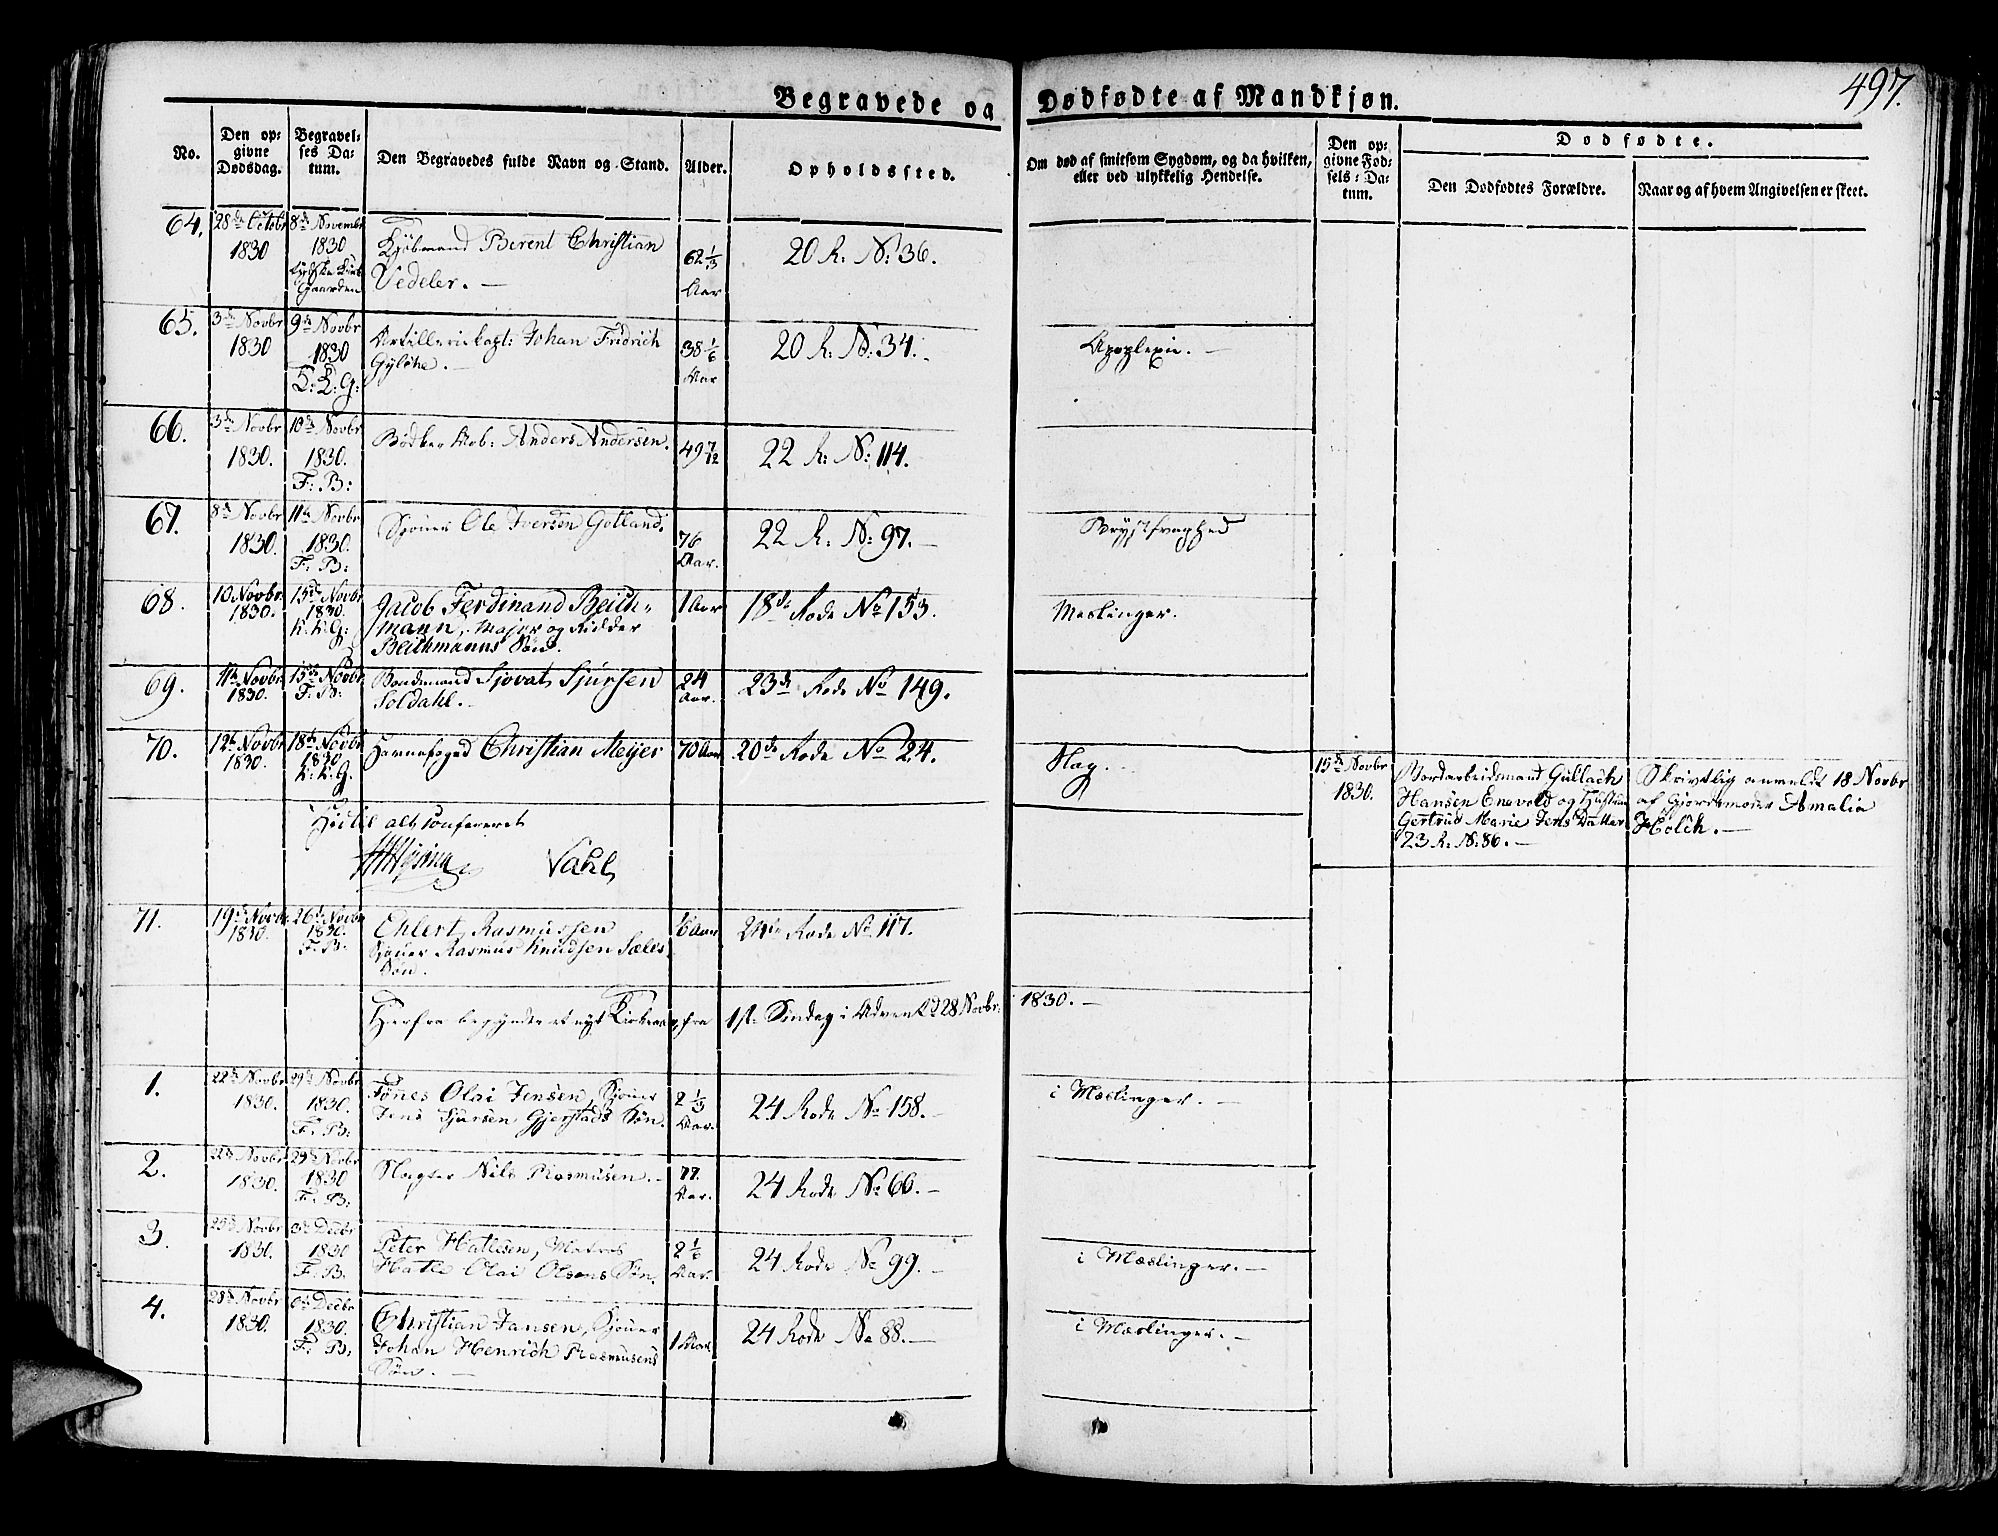 497.
Begravede og Dødfødte af Mandkjøn.
No.
Den op-
givne
Dødsdag.
Begravel-
ses Da-
tum.
Den Begravedes fulde Navn og Stand.
Alder.
Opholdssted.
Om død af smitsom Sygdom, og da hvilken,
eller ved ulykkelig Hendelse.
Den op-
givne Fød-
sels-Da-
tum.
Dødfødte.
Den Dødfødtes Forældre.
Naar og af hvem Angivelsen er skeet.
64.
28de Octobr
1830
8de Novembr
1830
Tydske Kirke
Gaarden
Kjøbmand Berent Christian
Vedeler. —
62 1/3
Aar
20 R: N: 36.
65.
3de Novbr
1830
9de Novbr
1830
Johan Fridrich
38 1/6
Aar
20 R: N: 34. -
Apoplexie. —
66.
3de Novbr
1830.
10de Novbr
1830.
F: B:
Bødker Anders Andersen.
49 7/12
22 R: N: 114.
67.
8de Novbr
1830.
11te Novbr
1830.
F: B:
Sjouer Ole Iversøn Gotland.
76
Aar.
22 R: N: 97. —
Brystsvaghed
68.
10 Novbr
1830.
15de Novbr
1830.
K. K. G:
Jacob Ferdinand Beich-
mann, Major og Ridder
Beichmanns Søn.
1 Aar
18de Rode No 153.
Meslinger.
69.
11te Novbr
1830.
15de Novbr
F. B:
Bondemand Sjovat Sjursen
Soldahl. -
24
Aar.
23de Rode No 149.
70.
12te Novbr
1830.
18de Novbr
1830
K: K. G.
Havnefoged Christian Meyer
70 Aar
20de Rode No 24.
Slag.
15de Novbr
1830.
Bordarbeidsmand Gullach
Hansen Enevold og Hustrue
Gertrud Marie Jens Datter
23 R: N: 86. —
Skrivtlig anmeldt 18 Novbr
af Gjordemoder Amalia
Holck. —
Hertil alt confereret
Vahl
71.
19de Novbr
1830.
26de Novbr
1830.
F. B:
Ehlert Rasmussen
Sjouer Rasmus Knudsen Sæles
Søn.
6 Aar
24de Rode No 117.
Herfra begyndte et nyt Kirkeaar, fra 1ste Søndag i Advent d 28 Novbr: 1830. —
1.
22de Novbr
1830.
29de Novbr
1830.
F. B:
Tønes Olai Jensen, Sjouer
Jens Sjursen Gjerstads Søn.
2 1/3
Aar.
24 Rode No 158. —
i Meslinger. —
2.
22de Novbr
1830.
29de Novbr
1830
F. B:
Slagter Nils Rasmusen. —
77
Aar.
24 Rode No 66. —
3.
25de Novbr
1830.
3de Decbr
1830
F. B.
Peter Hatlesen, Matros
Hatle Olai Olsens Søn.
2 1/6
Aar.
24 Rode No 99. —
i Mæslinger. —
4.
28de Novbr
1830.
6te Decbr
1830.
F. B:
Christian Jansen, Sjouer
Johan Henrich Rasmusens
Søn. —
24 Rode No 88. —
i Mæslinger. —